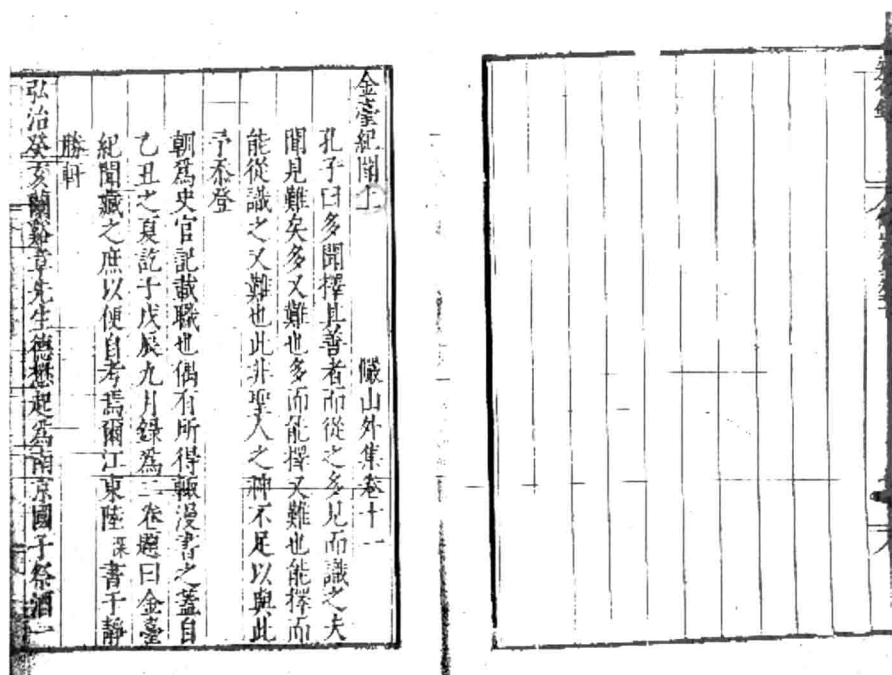 金臺紀聞上 儼山外集卷十一
孔子曰多聞擇其善者而從之多見而識之夫
聞見難矣多又難也多而能擇又難也能擇而
能從識之又難也此非聖人之神不足以與此
予忝登
朝爲史官記載職也偶有所得輒漫書之蓋自
乙丑之夏訖于戊辰九月錄爲二卷題曰金臺
紀聞藏之庶以便自考焉爾江東陸深書于靜
勝軒
弘治癸亥蘭谿章先生德懋起爲南京國子祭酒一